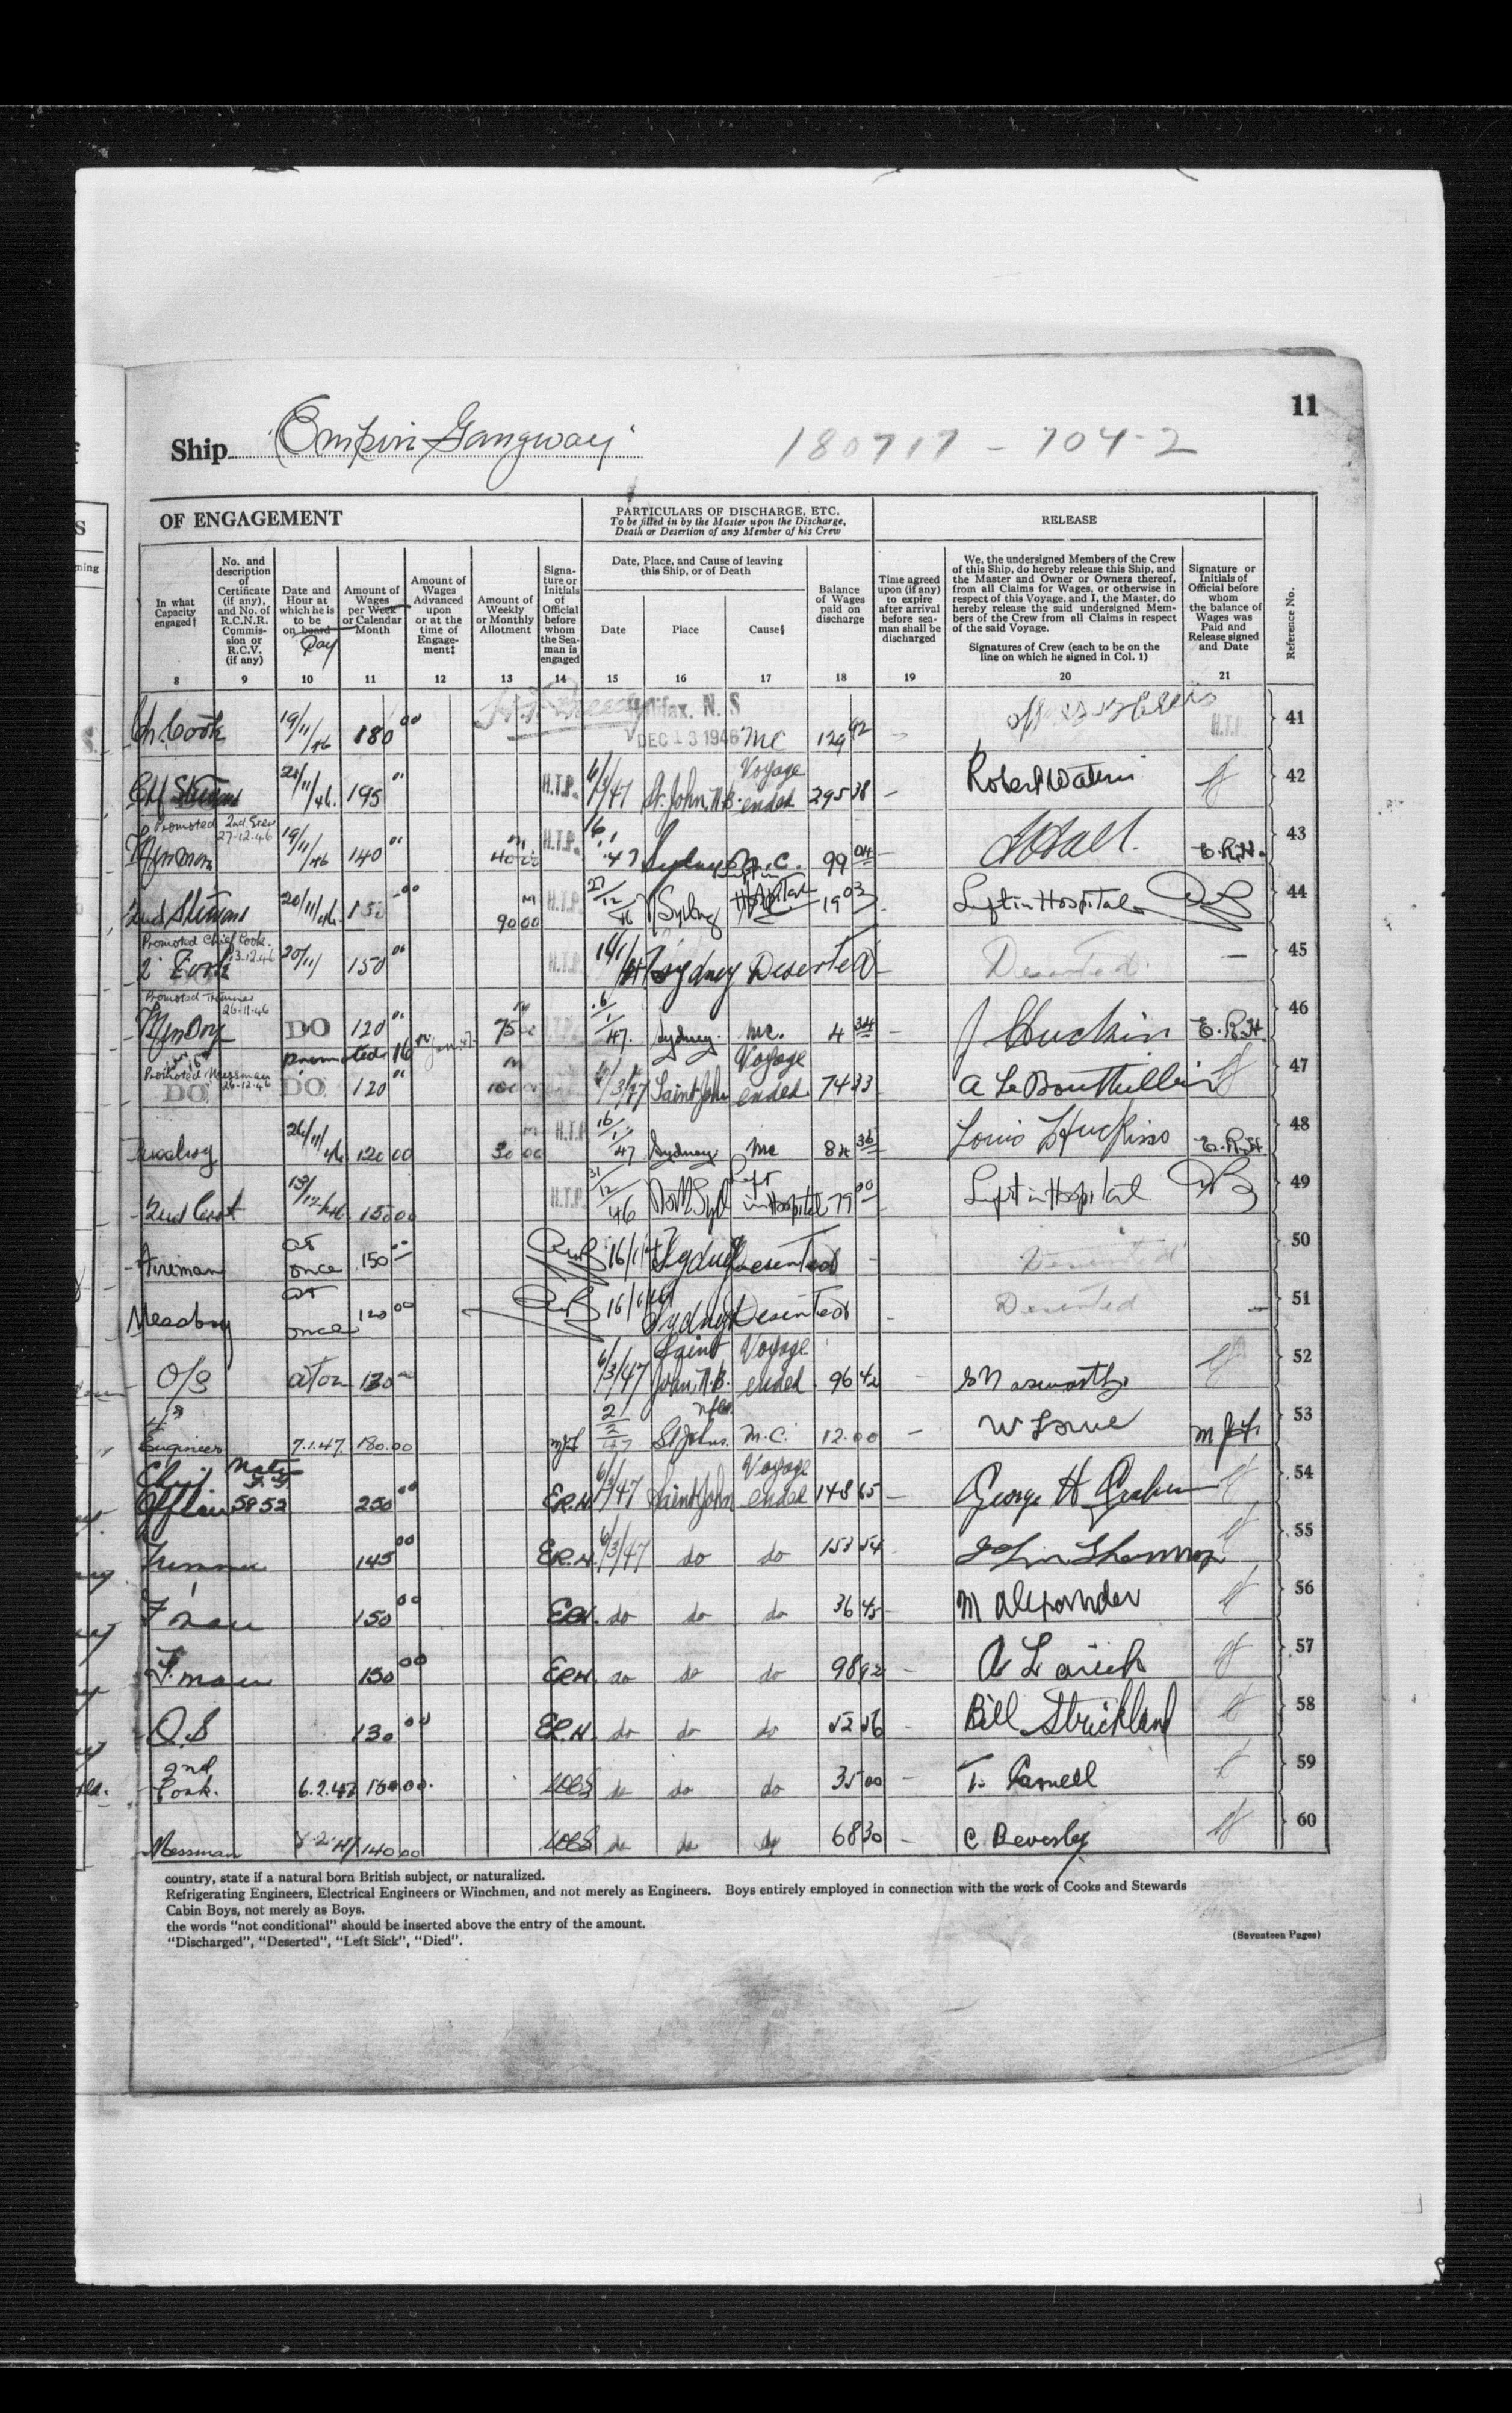 11
Ship Empire Gangway 180717 - 704-2
OF ENGAGEMENT
PARTICULARS OF DISCHARGE, ETC.
To be filled in by the Master upon the Discharge,
Death or Desertion of any Member of his Crew
RELEASE
In what Capacity engaged†
No. and description of Certificate (if any), and No. of R.C.N.R. Commis-sion or R.C.V. (if any)
Date and Hour at which he is to be on board Day
Amount of Wages per Week or Calendar Month
Amount of Wages Advanced upon or at the time of Engage-ment‡
Amount of Weekly or Monthly Allotment
Signa-ture or Initials of Official before whom the Sea-man is engaged
Date, Place, and Cause of leaving this Ship, or of Death
Date
Place
Cause§
Balance of Wages paid on discharge
Time agreed upon (if any) to expire after arrival before sea-man shall be discharged
We, the undersigned Members of the Crew of this Ship, do hereby release this Ship, and the Master and Owner or Owners thereof, from all Claims for Wages, or otherwise in respect of this Voyage, and I, the Master, do hereby release the said undersigned Mem-bers of the Crew from all Claims in respect of the said Voyage.
Signatures of Crew (each to be on the line on which he signed in Col. 1)
Signature or Initials of Official before whom the balance of Wages was Paid and Release signed and Date
Reference No.
8 9 10 11 12 13 14 15 16 17 18 19 20 21
Ch. Cook 19/11/46 180 00 Halifax, N.S DEC 13 1946 MC 129 92 H.T.P. 41
195 H.T.P. St. John, N.B. Voyage ended 295 38 — Robert Waters 42
Promoted 2nd Stew 27-12-46 19/11/46 140 m 40 00 H.T.P. 16/1/47 Sydney M.C. 99 04 — Hall. E.R.H. 43
2nd Steward 20/11/46 150 00 m 90 00 H.T.P. 27/12/46 Sydney Hospital 19 03 Left in Hospital 44
Promoted Chief Cook. 13.12.46 2 Cook 20/11/ 150 H.T.P. Sydney Deserted — Deserted — 45
Promoted Trimmer 26-11-46 DO 120 m 75 00 16/1/47. Sydney. mc. 4 34 — J Huckin E.R.H 46
Promoted Messman 26-12-46 DO DO 120 m 100 00 Saint John Voyage ended. 74 33 A Le Bouthillier 47
26/11/46 120 00 m 30 00 H.T.P 16/1/47 Sydney mc 84 36 Louis E.R.H 48
2nd Cook 13/12/46 150 00 H.T.P. 31/12/46 North Syd Left in Hospital 79 00 Left in Hospital 49
Fireman at once 150 00 16/1/47 Sydney Deserted — Deserted 50
Messboy at once 120 00 16/1/47 Sydney Deserted Deserted — 51
O/S at on 130 6/3/47 Saint John, N.B. Voyage ended 96 42 — 52
4th Engineer 7.1.47. 180.00 2/2/47 St Johns. nfld. M.C. 12.00 — W Lowe 53
Chief Officer Mate 5852 250 00 E.R.H. Saint John Voyage ended 148 65 — George H Graham 54
Trimmer 145 00 E.R.H. 6/3/47 do do 153 54 55
F'man 150 00 E.R.H. do do do 36 45 — M Alexander 56
F.man 150 00 E.R.H. do do do 98 92 — 57
O.S 130 00 E.R.H. do do do 52 56 — Bill Strickland 58
2nd Cook. 6.2.47 160.00. do do do 35 00 — T. Parnell 59
Messman 140 00 do do do 68 30 — C. Beverley 60
country, state if a natural born British subject, or naturalized.
Refrigerating Engineers, Electrical Engineers or Winchmen, and not merely as Engineers. Boys entirely employed in connection with the work of Cooks and Stewards
Cabin Boys, not merely as Boys.
the words "not conditional" should be inserted above the entry of the amount.
"Discharged", "Deserted", "Left Sick", "Died".
(Seventeen Pages)